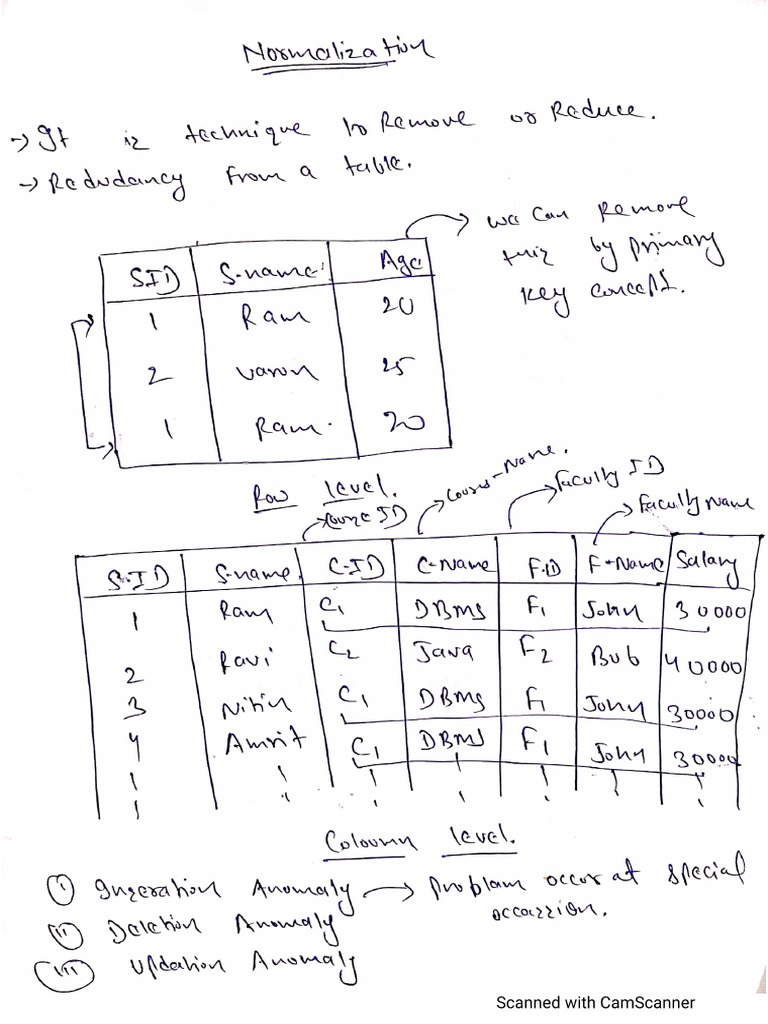 Normalization
→ It is technique to Remove or Reduce.
→ Redudancy from a table.
we can Remove
this by primary
key concept.
SID S-name Age
1 Ram 20
2 varun 25
1 Ram 20
Row level.
Course ID
Course-Name.
Faculty ID
Faculty Name
S-ID S-name C-ID C-Name F.ID F-Name Salary
1 Ram C1 DBMS F1 John 30000
2 Ravi C2 Java F2 Bob 40000
3 Nitin C1 DBMS F1 John 30000
4 Amrit C1 DBMS F1 John 30000
Coloumn level.
(i) Inseration Anomaly → Problam occur at special
occassion.
(ii) Deletion Anomaly
(iii) Updation Anomaly
Scanned with CamScanner